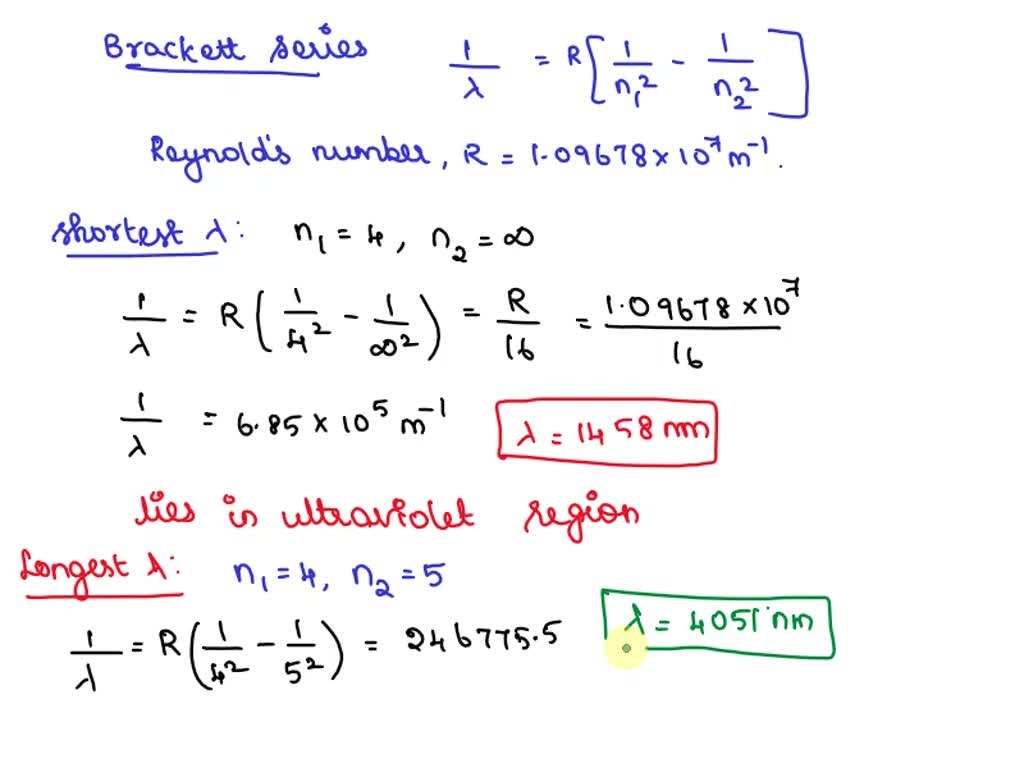 Brackett series 1/λ = R[1/n₁² - 1/n₂²]
Reynold's number, R = 1.09678 × 10⁷ m⁻¹.
Shortest λ: n₁ = 4, n₂ = ∞
1/λ = R(1/4² - 1/∞²) = R/16 = 1.09678 × 10⁷/16
1/λ = 6.85 × 10⁵ m⁻¹ λ = 1458 nm
lies in ultraviolet region
Longest λ: n₁ = 4, n₂ = 5
1/λ = R(1/4² - 1/5²) = 246775.5 λ = 4051 nm